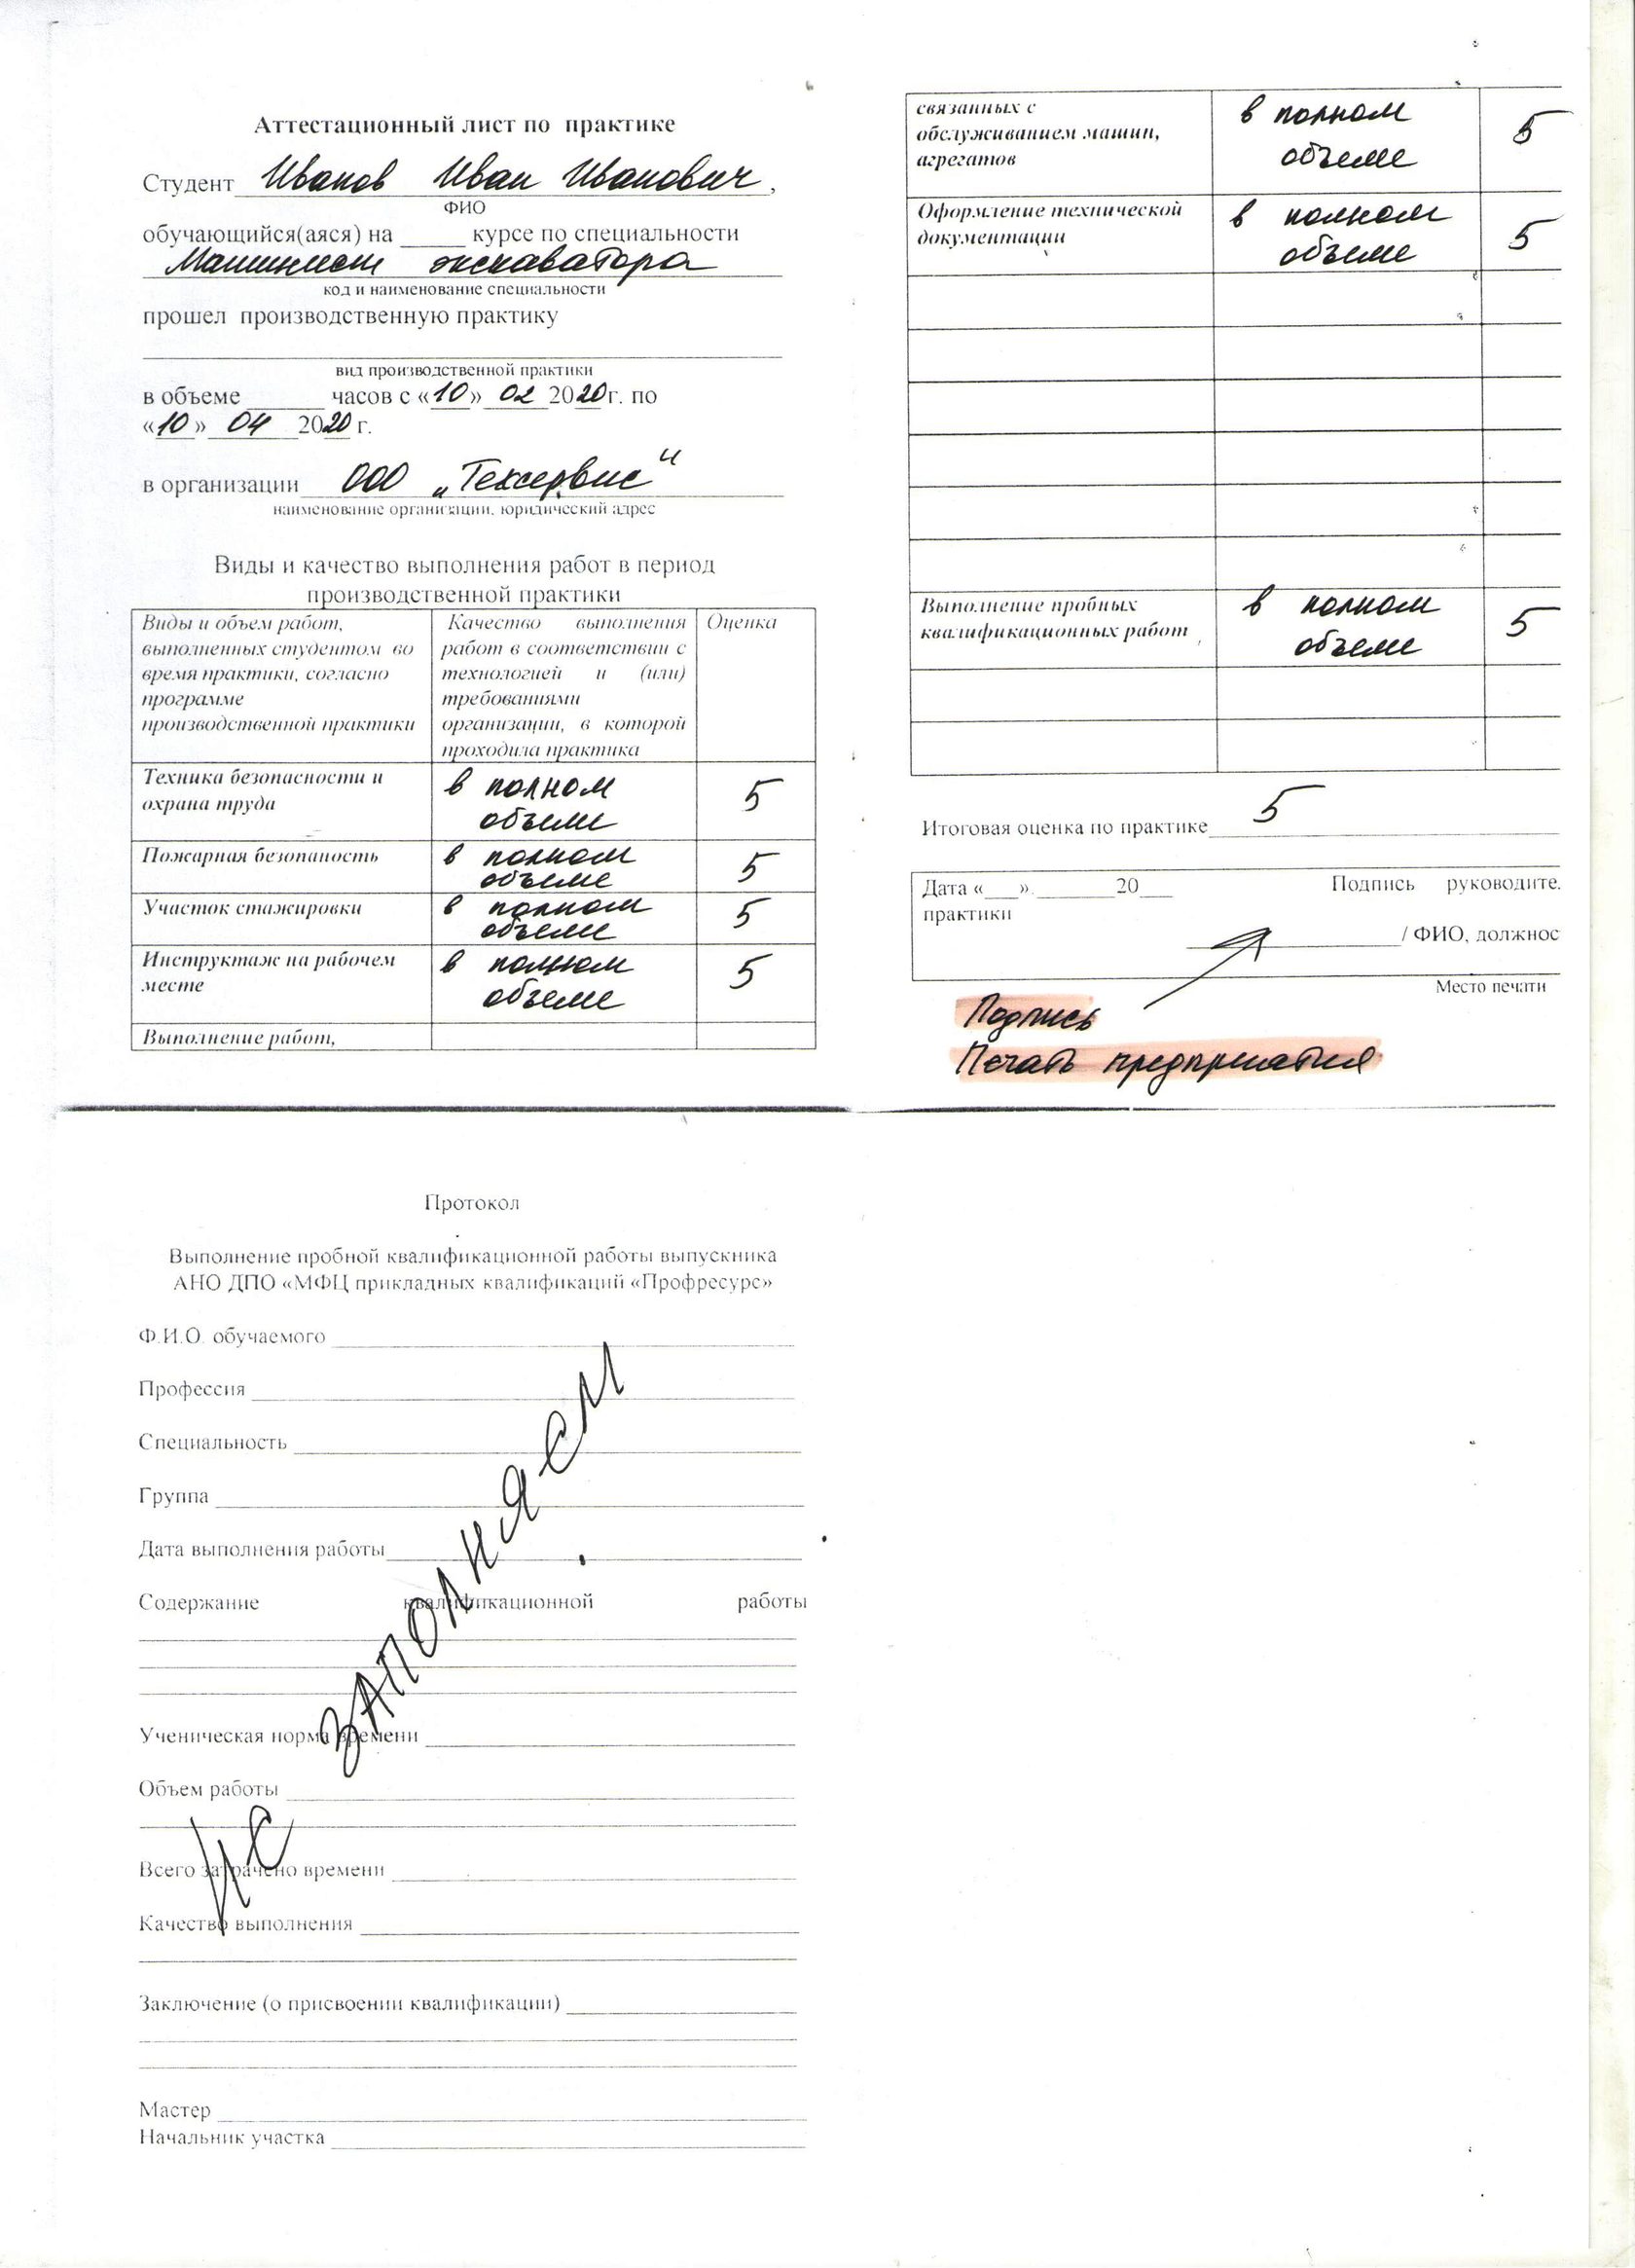 Аттестационный лист по практике
Студент Иванов Иван Иванович,
ФИО
обучающийся(аяся) на _____ курсе по специальности
Машинист экскаватора
код и наименование специальности
прошел производственную практику
вид производственной практики
в объеме ______ часов с «10» 02 2020г. по
«10» 04 2020 г.
в организации ООО „Техсервис"
наименование организации, юридический адрес
Виды и качество выполнения работ в период
производственной практики
Виды и объем работ, выполненных студентом во время практики, согласно программе производственной практики
Качество выполнения работ в соответствии с технологией и (или) требованиями организации, в которой проходила практика
Оценка
Техника безопасности и охрана труда
в полном объеме
5
Пожарная безопаность
в полном объеме
5
Участок стажировки
в полном объеме
5
Инструктаж на рабочем месте
в полном объеме
5
Выполнение работ,
связанных с обслуживанием машин, агрегатов
в полном объеме
5
Оформление технической документации
в полном объеме
5
Выполнение пробных квалификационных работ
в полном объеме
5
Итоговая оценка по практике 5
Дата «___» ________20___ Подпись руководите.
практики
/ ФИО, должнос
Место печати
Подпись
Печать предприятия
Протокол
Выполнение пробной квалификационной работы выпускника
АНО ДПО «МФЦ прикладных квалификаций «Профресурс»
Ф.И.О. обучаемого
Профессия
Специальность
Группа
Дата выполнения работы
Содержание квалификационной работы
Ученическая норма времени
Объем работы
Всего затрачено времени
Качество выполнения
Заключение (о присвоении квалификации)
Мастер
Начальник участка
НЕ ЗАПОЛНЯЕМ